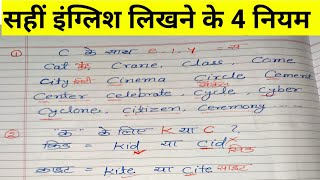 सहीं इंग्लिश लिखने के 4 नियम
① C के साथ E, I, Y = स
Cat कैट, Crane, Class, Come
City सिटी Cinema Circle Cement
Center Celebrate, Cycle, Cyber
Cyclone, Citizen, Ceremony ----
② "क" के लिए K या C ?
किड = Kid या Cid
काइट = Kite या Cite साइट